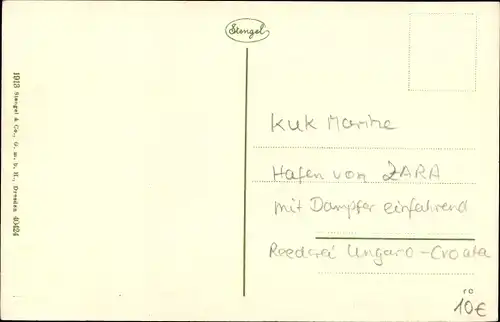 Stengel
1913 Stengel & Co., G. m. b. H., Dresden 40424
KuK Marine
Hafen von ZARA
mit Dampfer einfahrend
Reederei Ungaro-Croata
ro
10€